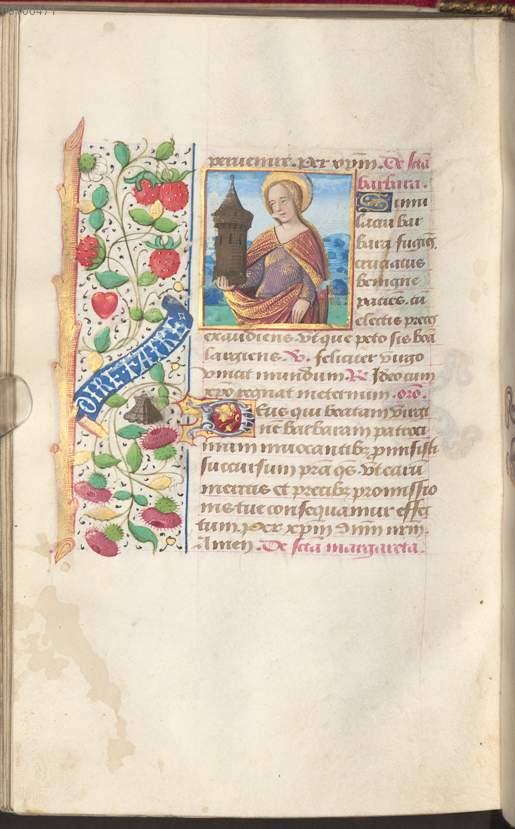 peruenire. Per xp̄m. De sc̄ta
barbara.
bar
bara fugiēs
cruciatus
benigne
pacis. ac
electis preces
exaudiens. vt que peto sis
largiens. V. feliciter virgo
mundum. R. Ideo cum
xp̄o regnat in eternum. or̄o.
Deus qui beatam virgi
ne barbaram patroci
nium inuocantibꝫ
succursum pr̄a q̄s. vt eam
meritis et precibꝫ promissio
nis tue consequamur effec
tum. Per xp̄m dn̄m nr̄m.
Amen. De sc̄ta margareta.
DIRE·FAIRE